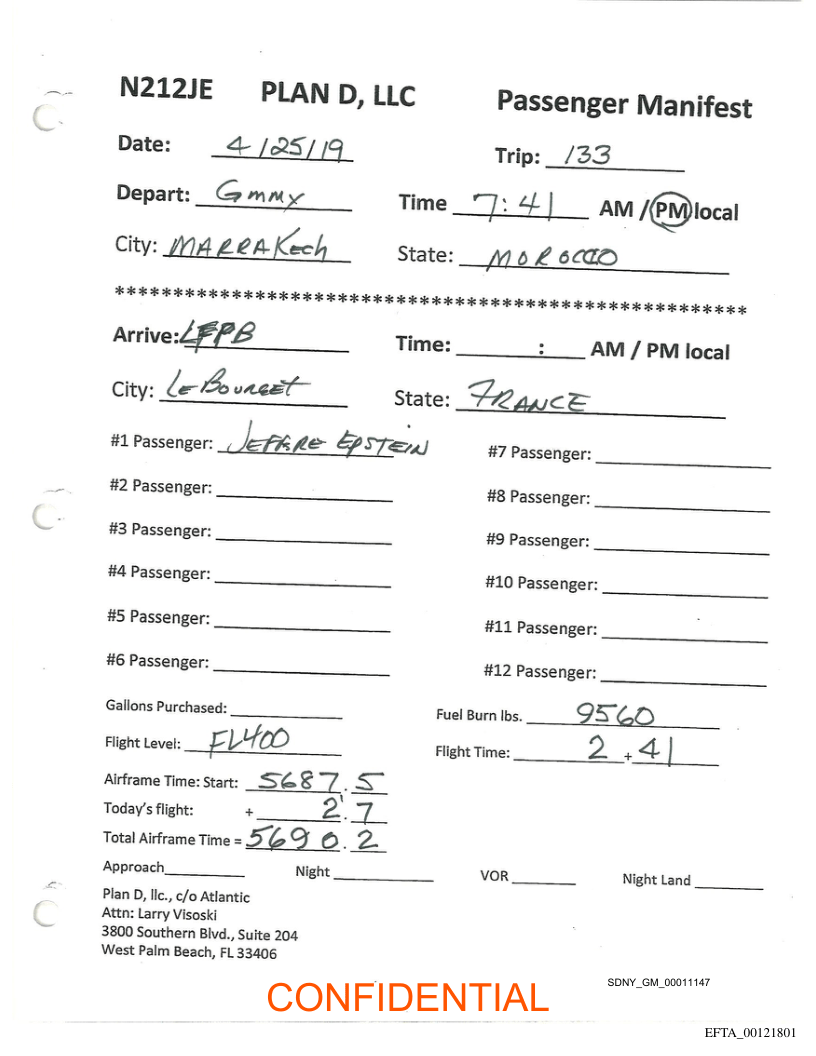 N212JE PLAN D, LLC Passenger Manifest
Date: 4/25/19 Trip: 133
Depart: GMMX Time 7:41 AM / PM local
City: MARRAKECH State: MOROCCO
******************************************************
Arrive: LFPB Time: ______:____ AM / PM local
City: LE BOURGET State: FRANCE
#1 Passenger: JEFFRE EPSTEIN #7 Passenger:
#2 Passenger: #8 Passenger:
#3 Passenger: #9 Passenger:
#4 Passenger: #10 Passenger:
#5 Passenger: #11 Passenger:
#6 Passenger: #12 Passenger:
Gallons Purchased: Fuel Burn lbs. 9560
Flight Level: FL400 Flight Time: 2 + 41
Airframe Time: Start: 5687.5
Today's flight: + 2.7
Total Airframe Time = 5690.2
Approach Night VOR Night Land
Plan D, llc., c/o Atlantic
Attn: Larry Visoski
3800 Southern Blvd., Suite 204
West Palm Beach, FL 33406
SDNY_GM_00011147
CONFIDENTIAL
EFTA_00121801